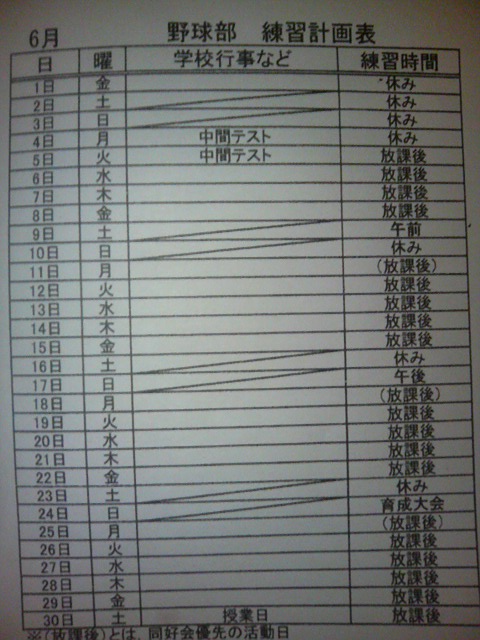 6月 野球部 練習計画表
日 曜 学校行事など 練習時間
1日 金 休み
2日 土 休み
3日 日 休み
4日 月 中間テスト 休み
5日 火 中間テスト 放課後
6日 水 放課後
7日 木 放課後
8日 金 放課後
9日 土 午前
10日 日 休み
11日 月 (放課後)
12日 火 放課後
13日 水 放課後
14日 木 放課後
15日 金 放課後
16日 土 休み
17日 日 午後
18日 月 (放課後)
19日 火 放課後
20日 水 放課後
21日 木 放課後
22日 金 放課後
23日 土 休み
24日 日 育成大会
25日 月 (放課後)
26日 火 放課後
27日 水 放課後
28日 木 放課後
29日 金 放課後
30日 土 授業日 放課後
※(放課後)とは、同好会優先の活動日